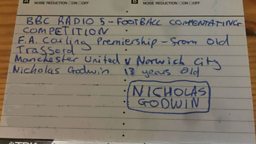 NOISE REDUCTION □ON □OFF
B NOISE REDUCTION □ON □OFF
BBC RADIO 5 - FOOTBALL COMMENTATING
COMPETITION
F.A. Carling Premiership - From Old
Trafford
Manchester United v Norwich City
Nicholas Godwin 18 years old
NICHOLAS
GODWIN